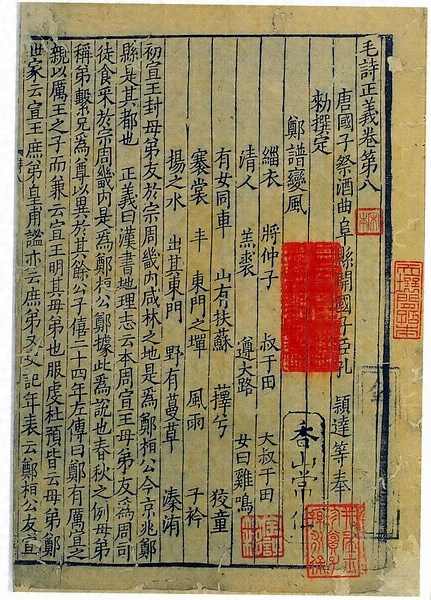 毛詩正義卷第八
唐國子祭酒曲阜縣開國子臣孔 穎達等奉
勑撰定
鄭譜變風
緇衣 將仲子 叔于田 大叔于田
清人 羔裘 遵大路 女曰雞鳴
有女同車 山有扶蘇 蘀兮 狡童
褰裳 丰 東門之墠 風雨 子衿
揚之水 出其東門 野有蔓草 溱洧
初宣王封母弟友於宗周畿內咸林之地是為鄭桓公今京兆鄭
縣是其都也 正義曰漢書地理志云本周宣王母弟友為周司
徒食采於宗周畿內是為鄭桓公鄭據此為說也春秋之例母弟
稱弟繫兄為尊以異於其餘公子僖二十四年左傳曰鄭有厲宣之
親以厲王之子而兼云宣王明其母弟也服虔杜預皆云母弟鄭
世家云宣王庶弟皇甫謐亦云庶弟又史記年表云鄭桓公友宣
香山常住